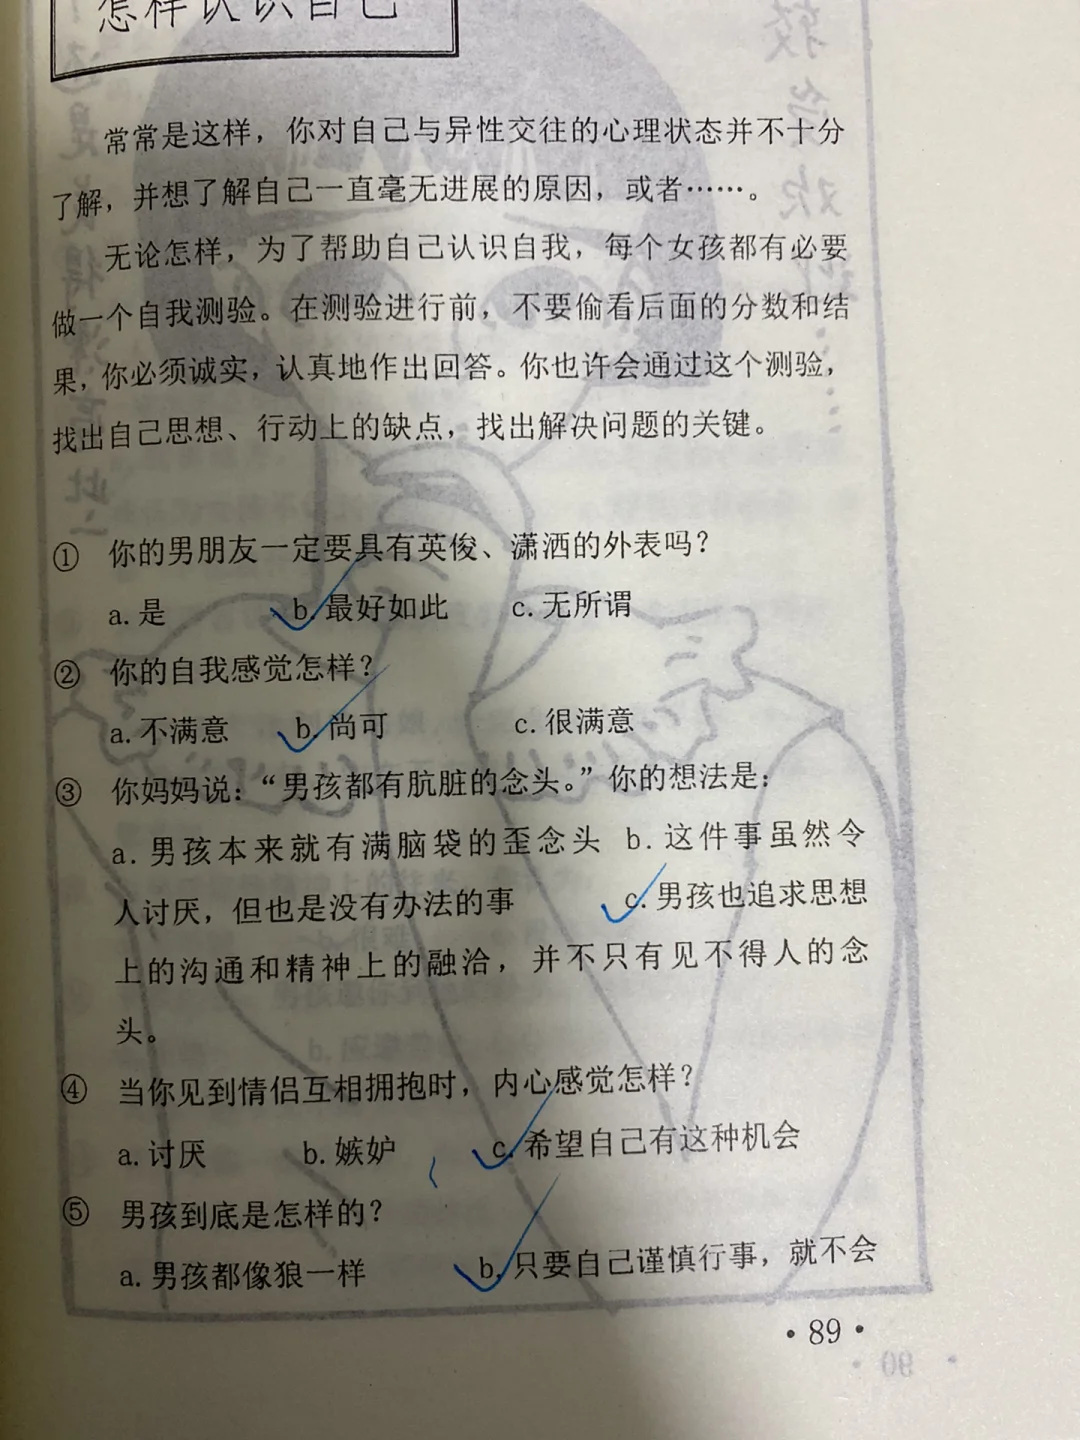 怎样认识自己
常常是这样，你对自己与异性交往的心理状态并不十分
了解，并想了解自己一直毫无进展的原因，或者……。
无论怎样，为了帮助自己认识自我，每个女孩都有必要
做一个自我测验。在测验进行前，不要偷看后面的分数和结
果，你必须诚实，认真地作出回答。你也许会通过这个测验，
找出自己思想、行动上的缺点，找出解决问题的关键。
① 你的男朋友一定要具有英俊、潇洒的外表吗？
a. 是 b. 最好如此 c. 无所谓
② 你的自我感觉怎样？
a. 不满意 b. 尚可 c. 很满意
③ 你妈妈说：“男孩都有肮脏的念头。”你的想法是：
a. 男孩本来就有满脑袋的歪念头 b. 这件事虽然令
人讨厌，但也是没有办法的事 c. 男孩也追求思想
上的沟通和精神上的融洽，并不只有见不得人的念
头。
④ 当你见到情侣互相拥抱时，内心感觉怎样？
a. 讨厌 b. 嫉妒 c. 希望自己有这种机会
⑤ 男孩到底是怎样的？
a. 男孩都像狼一样 b. 只要自己谨慎行事，就不会
· 89 ·